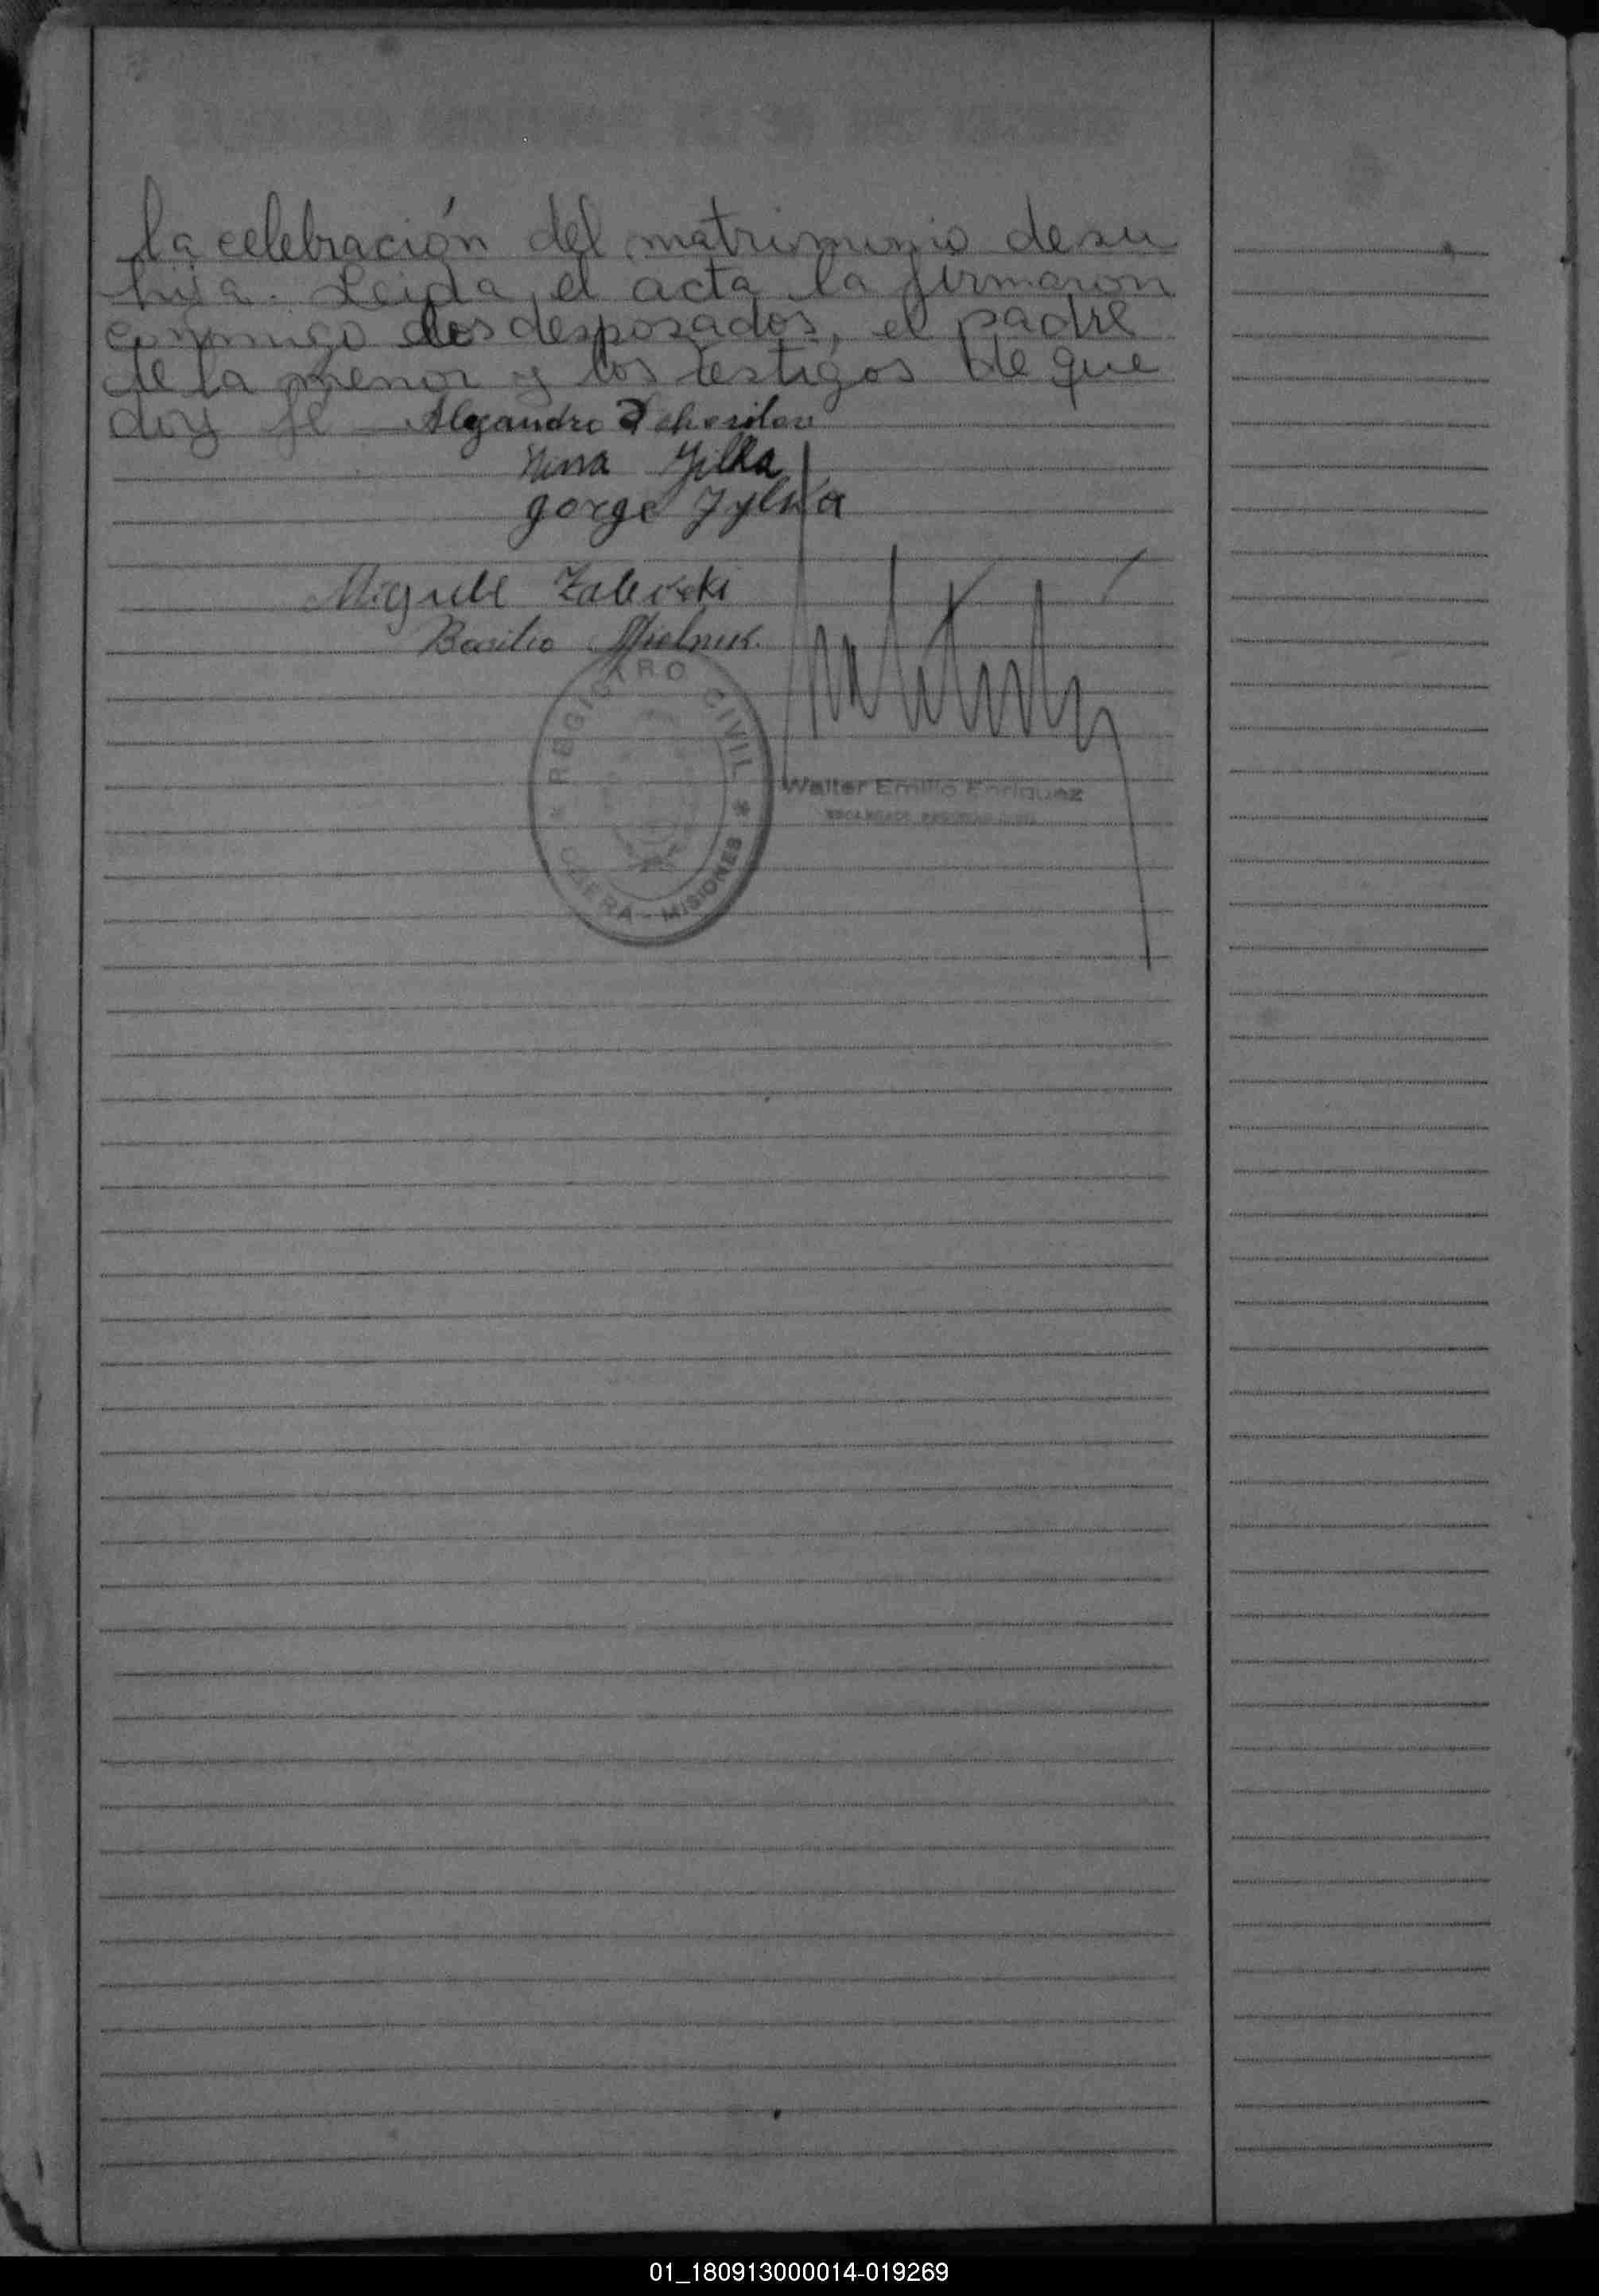 la celebración del matrimonio de su
hija. Leida el acta la firmaron
conmigo los desposados, el padre
de la menor y los testigos de que
doy fe Alejandro
Nina Jilka
Jorge Jylka
Miguel Zaleski
Basilio Mielnik
REGISTRO CIVIL
OBERA - MISIONES
Walter Emilio Enriquez
ENCARGADO REGISTRO CIVIL
01_180913000014-019269